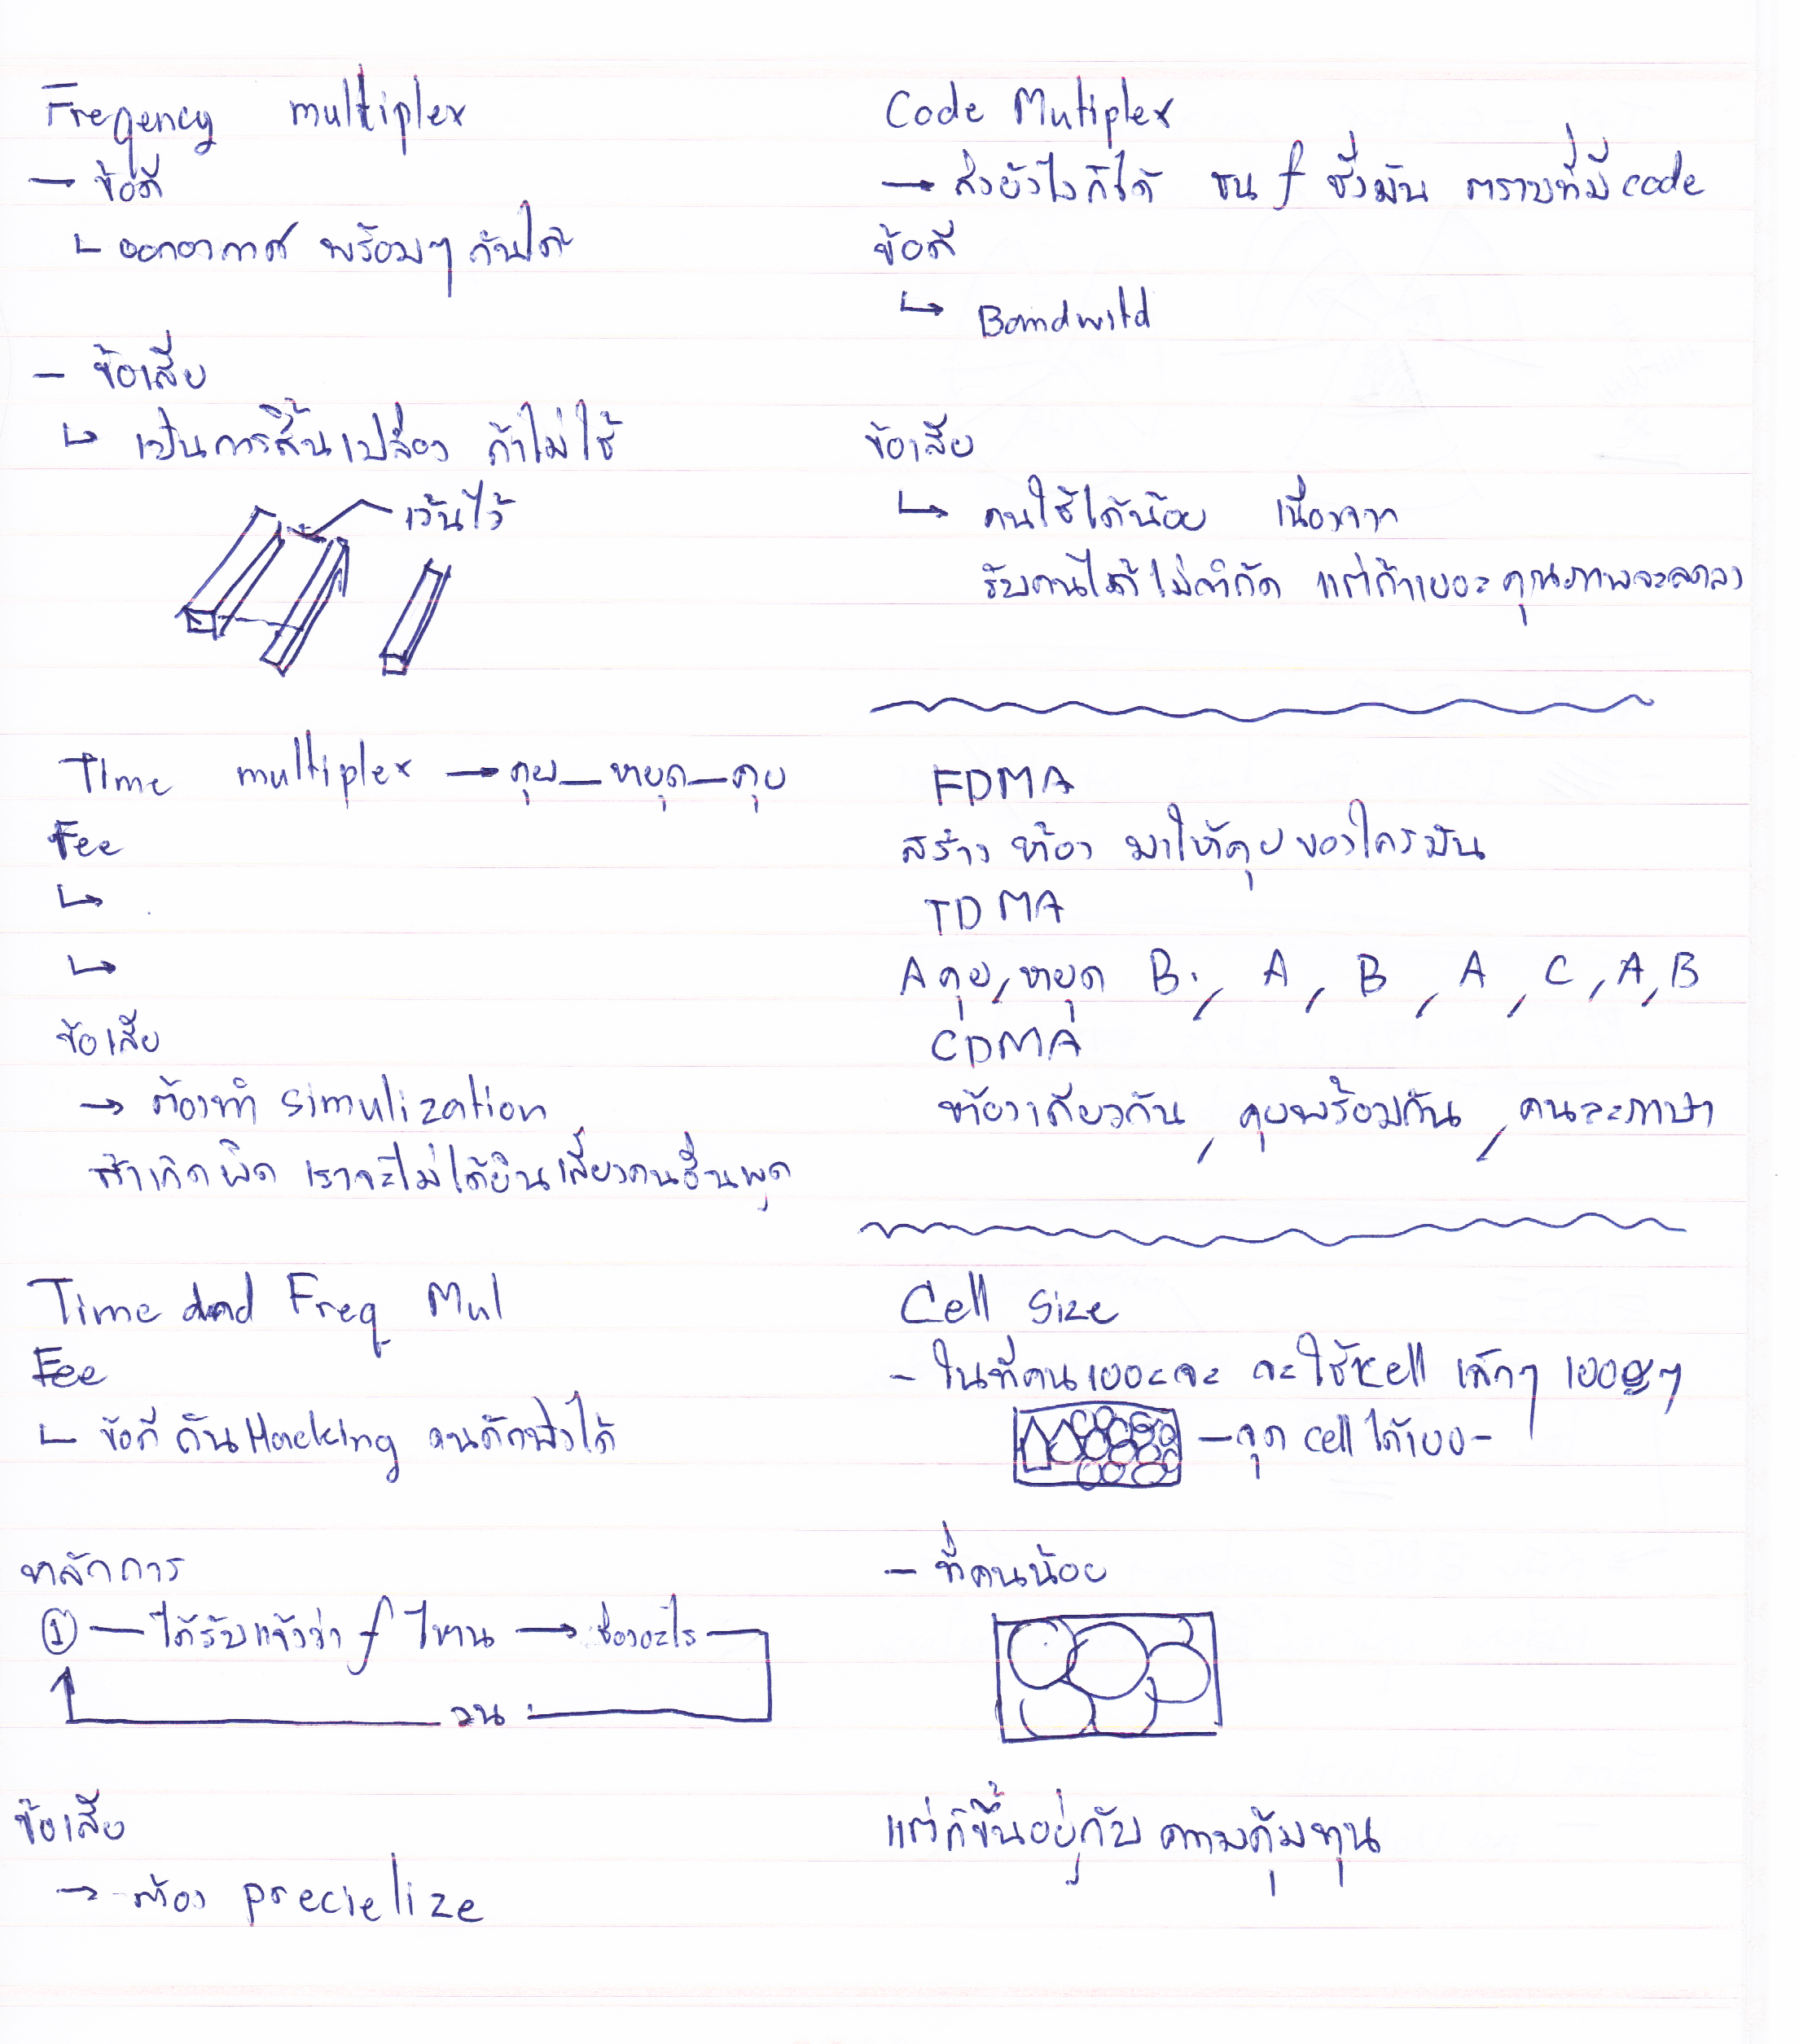 Freqency multiplex
→ ข้อดี
↳ ออกอากาศ พร้อมๆ กันได้
- ข้อเสีย
↳ เป็นการสิ้นเปลือง ถ้าไม่ใช้
เว้นไว้
Time multiplex → คุย - หยุด - คุย
Fee
↳
↳
ข้อเสีย
→ ต้องทำ simulization
ถ้าเกิดผิด เราจะไม่ได้ยินเสียงคนอื่นพูด
Time and Freq Mul
Fee
↳ ข้อดี กัน Hacking คนดักฟังได้
หลักการ
① - ได้รับแจ้งว่า f ไหน → ช่องอะไร
วน
ข้อเสีย
→ ต้อง precielize
Code Mutiplex
→ ส่งยังไงก็ได้ ชน f ซึ่งมัน ตราบที่มี code
ข้อดี
↳ Bandwitd
ข้อเสีย
↳ คนใช้ได้น้อย เนื่องจาก
รับคนได้ไม่จำกัด แต่ถ้าเยอะคุณภาพจะลดลง
FDMA
สร้าง ห้อง มาให้คุยของใครมัน
TDMA
A คุย, หยุด B, A, B, A, C, A, B
CDMA
ห้องเดียวกัน, คุยพร้อมกัน, คนละภาษา
Cell Size
- ในที่คนเยอะจะ จะใช้ cell เล็กๆ เยอะๆ
- จุด cell ได้เยอะ
- ที่คนน้อย
แต่ก็ขึ้นอยู่กับ ความคุ้มทุน